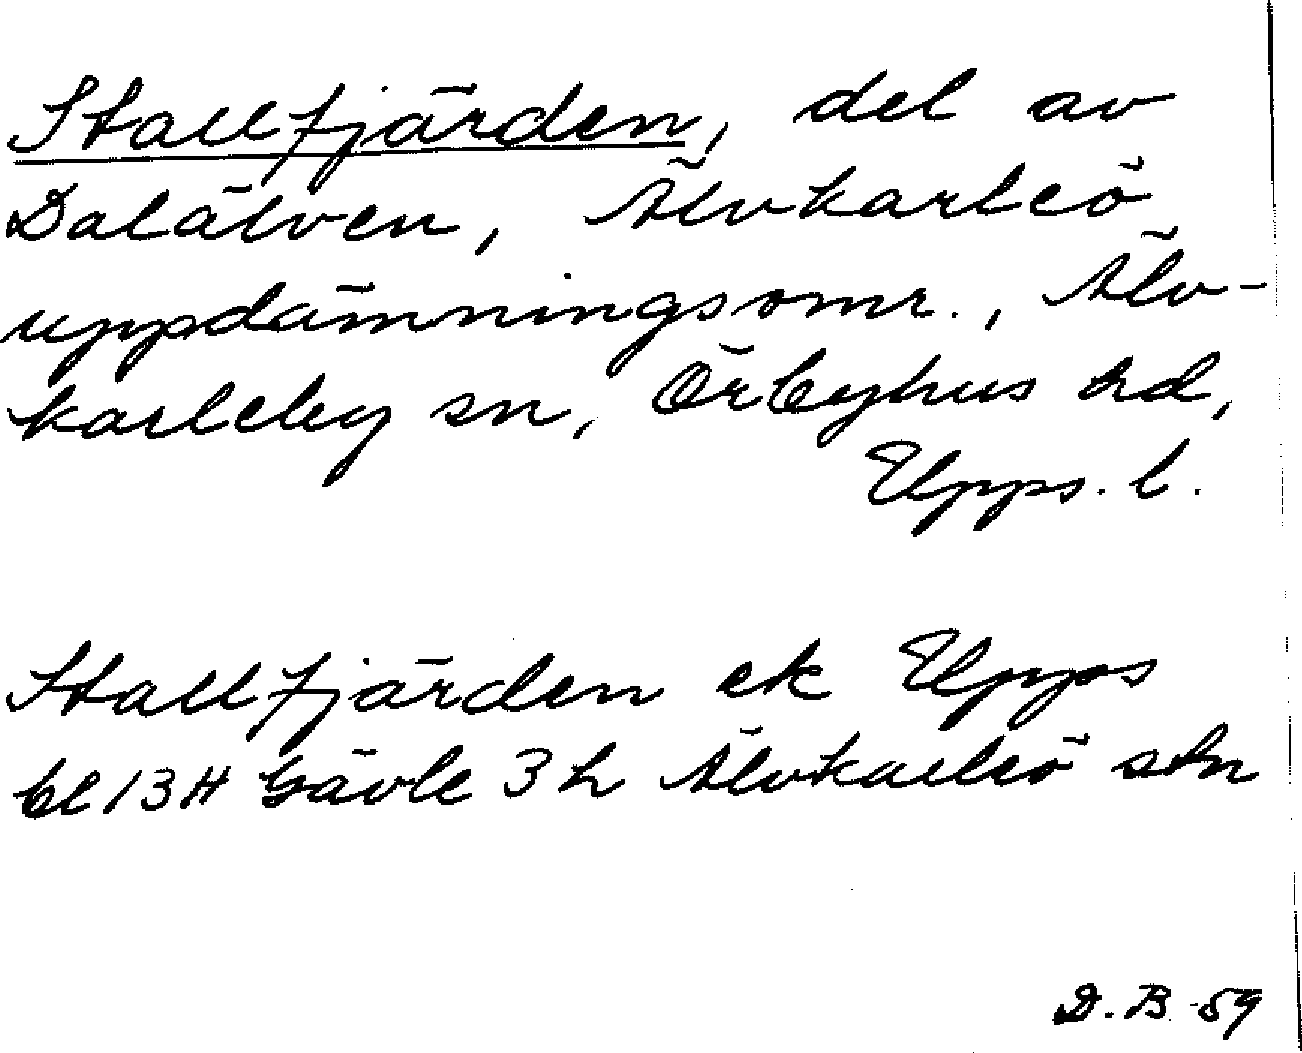 Stallfjärden, del av
Dalälven, Älvkarleö
uppdämningsomr., Älv-
karleby sn, Örbyhus hd,
Upps. l.
Stallfjärden ek Upps
bl 13H Gävle 3h Älvkarleö stn
D.B. -59